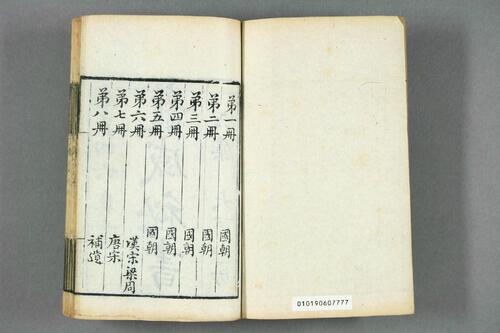 第一冊 國朝
第二冊 國朝
第三冊 國朝
第四冊 國朝
第五冊 國朝
第六冊 漢宗梁周
第七冊 唐宋
第八冊 補遺
010190607777